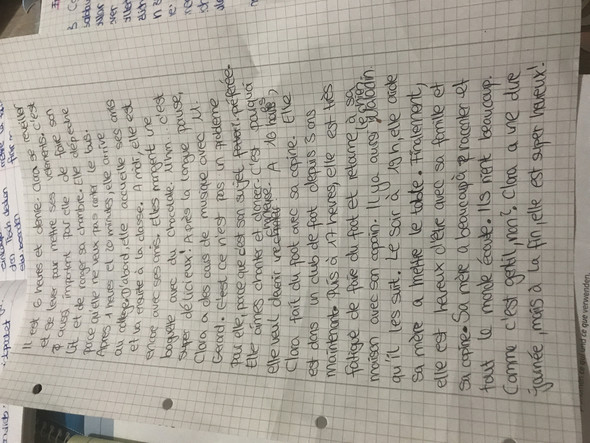 Il est 6 heures et demie. Clara se reveiller
et se laver pour mettre ses vetements. C'est
aussi important pur elle de faire son
lit et de range sa chambre. Elle dépeche
parce qu'elle ne veux pas rater le bus.
Après 1 heures et 20 minutes, elle arrive
au collège. D'abord, elle accueille ses amis
et va ensuite à la classe. A midi, elle est
encore avec ses amis. Elles mangent une
baguette avec du chocolate. Mhm, c'est
super delicieux! Après la longue pause,
Clara a des cours de musique avec M.
Gerard. Et est ce n'est pas un probleme
pour elle, parce que c'est son sujet préférée.
Elle aimes chanter et dancer, c'est pourquoi
elle veut devenir A 16 heures,
Clara fait du foot avec sa copine. Elle
est dans un club de foot depuis 3 ans
maintenant. Puis à 17 heures, elle est très
fatigué de faire du foot et retourne à sa
maison avec son copain. Il y a aussi le chien Aladdin
qu'il les suit. Le soir à 19 h, elle aide
sa mère a mettre la table. Finalement,
elle est heureux d'être avec sa famille et
sa copine. Sa mère a beaucoup à raconter et
tout le monde écoute. Ils rient beaucoup.
Comme c'est gentil, non? Clara a une dure
journée mais à la fin, elle est super heureux!